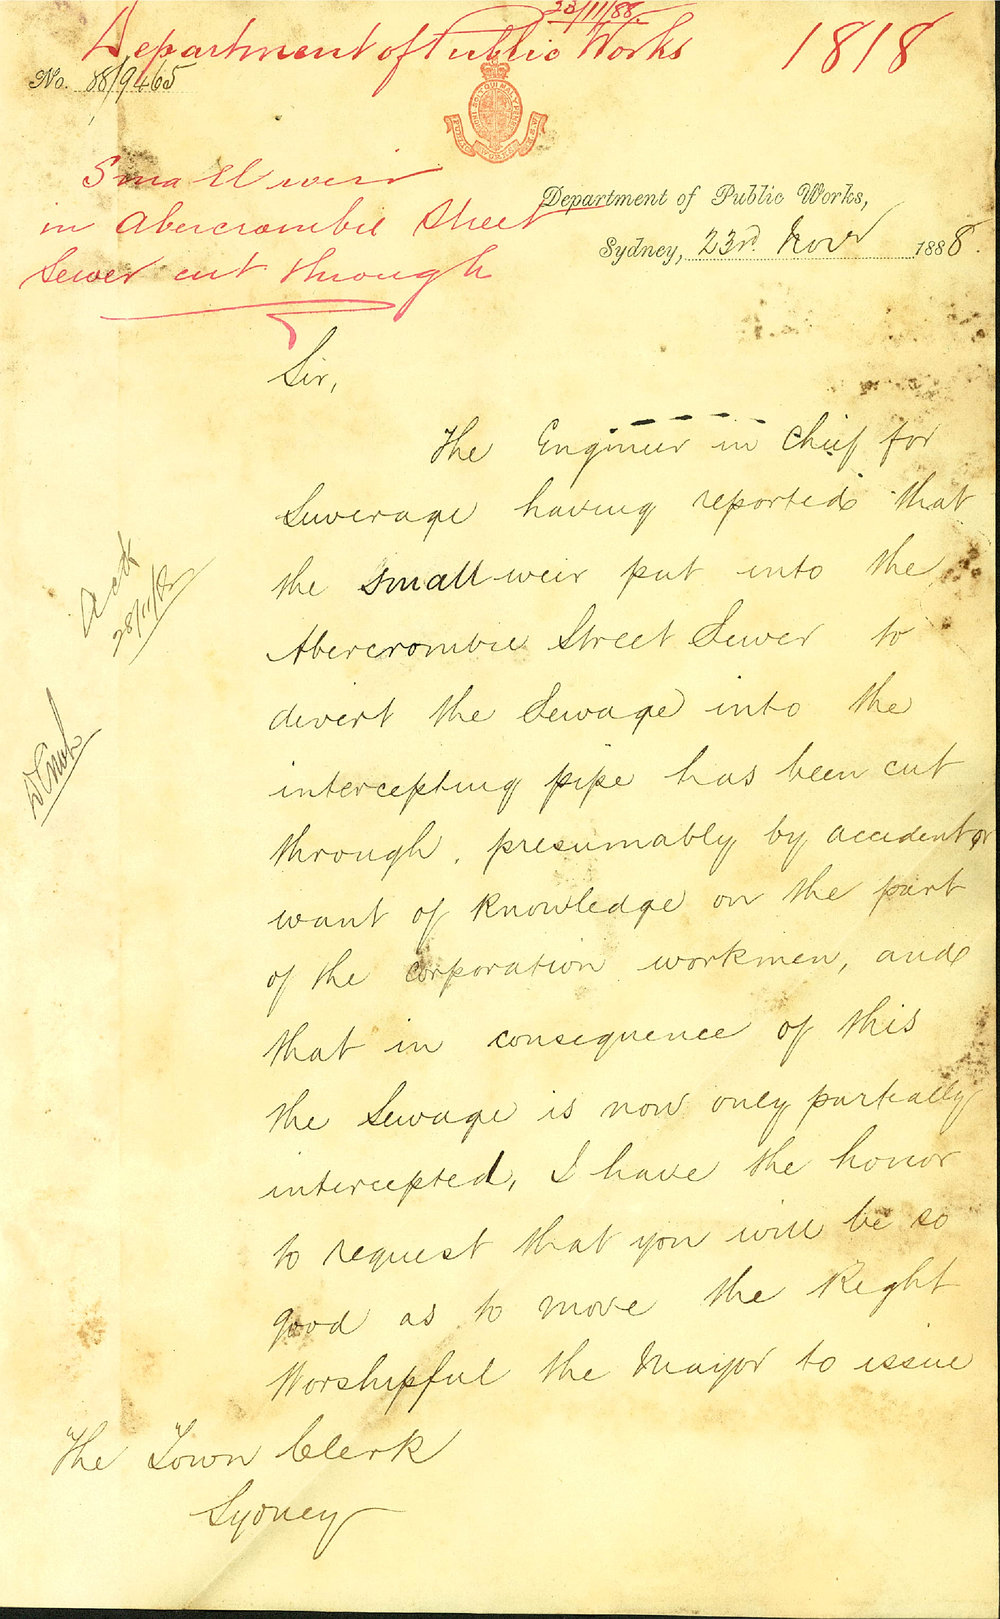 23/11/88.
Department of Public Works
1818
No. 88/9465
Small weir
in Abercrombie Street
Sewer cut through
Department of Public Works,
Sydney, 23rd Novr 1888.
Sir,
The Engineer in Chief for
Sewerage having reported that
the small weir put into the
Abercrombie Street Sewer to
divert the Sewage into the
intercepting pipe has been cut
through, presumably by accident or
want of knowledge on the part
of the corporation workmen, and
that in consequence of this
the Sewage is now only partially
intercepted, I have the honor
to request that you will be so
good as to move the Right
Worshipful the Mayor to issue
Ack
28/11/88
The Town Clerk
Sydney